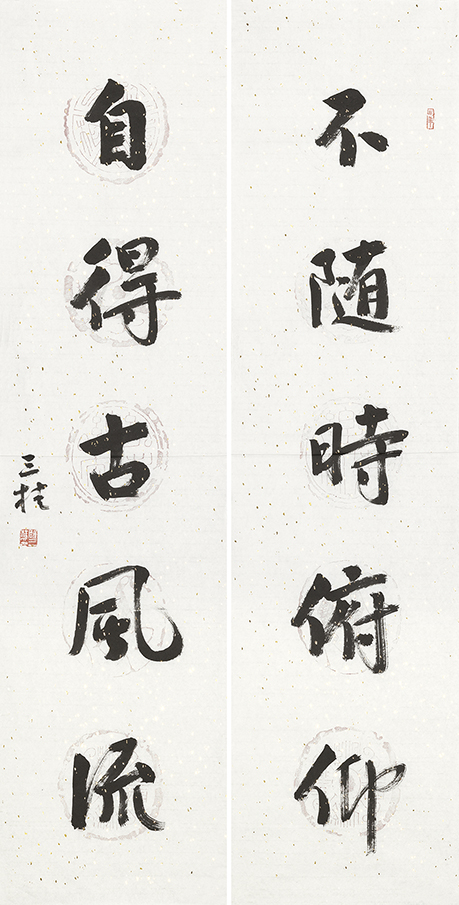 不随時俯仰
自得古風流
三桂